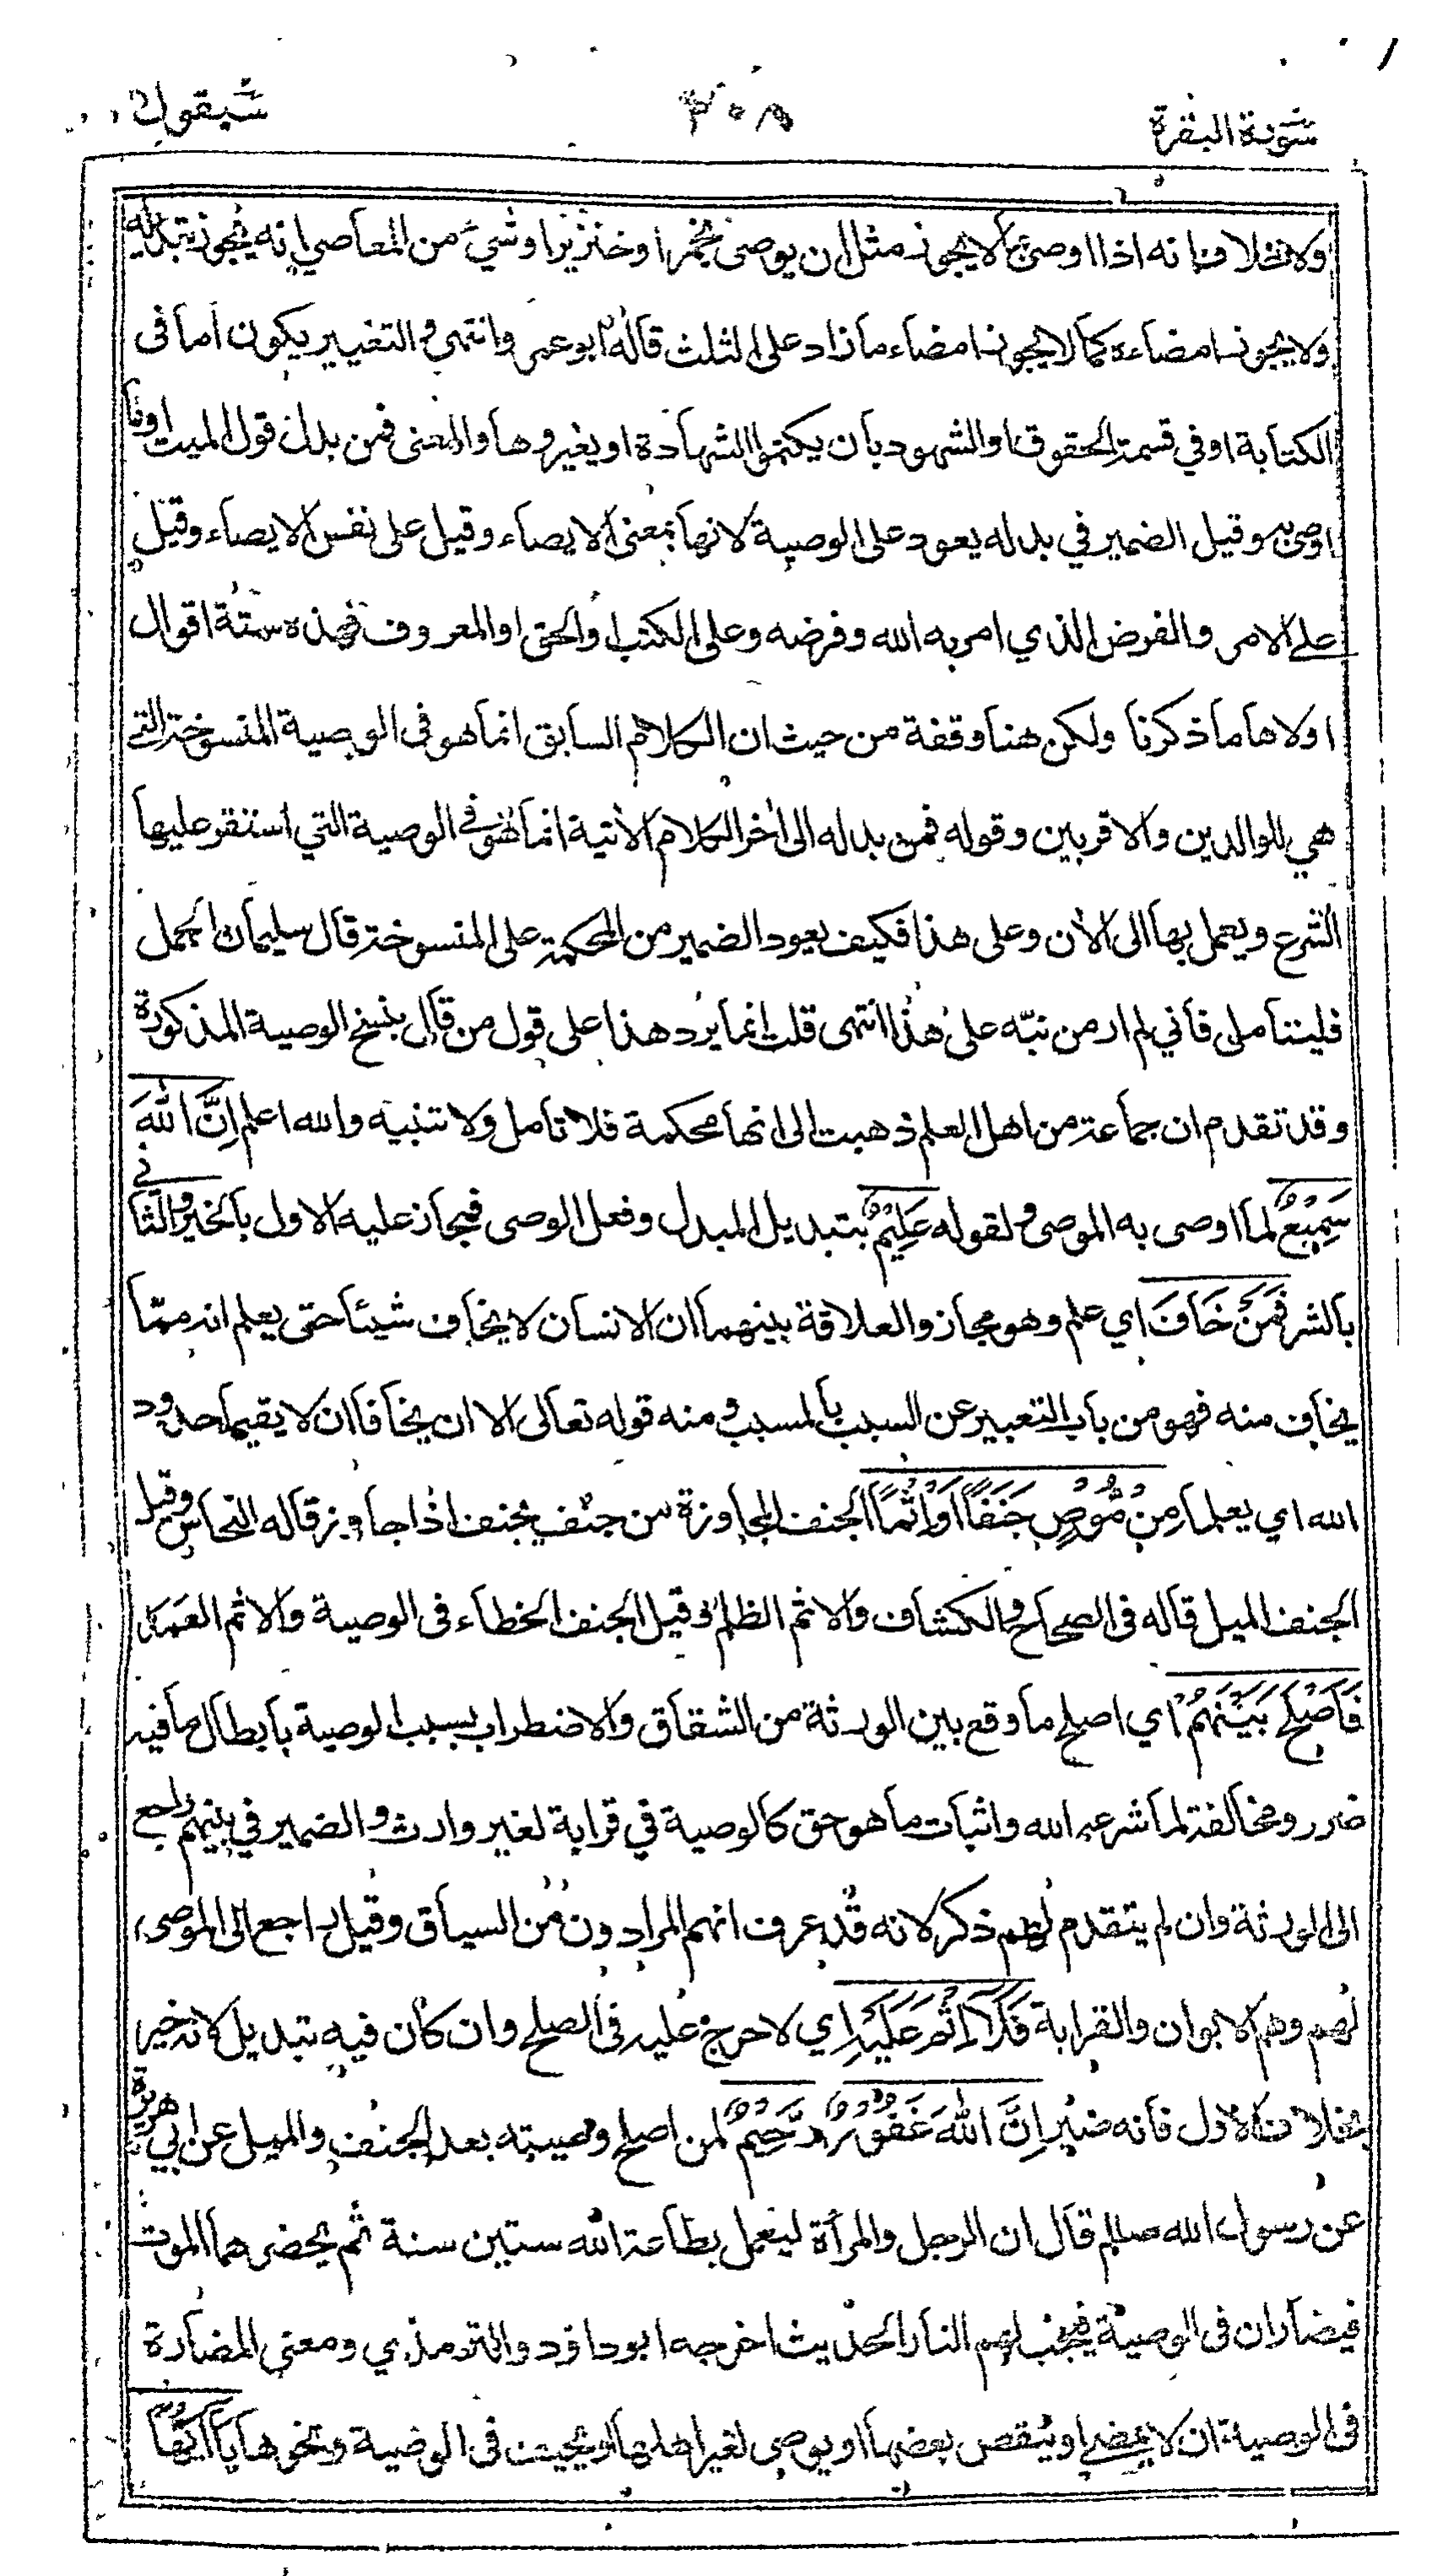 سورة البقرة ٣٠٨ سيقول
ولا خلاف انه اذا اوصى بما لا يجوز مثل ان يوصى بخمر او خنزير او شيء من المعاصي انه يجوز تبديله
ولا يجوز امضاءه كما لا يجوز امضاء ما زاد على الثلث قاله ابو عمر وانتهى والتغيير يكون اما فى
الكتابة او في قسمة الحقوق او الشهود بان يكتموا الشهادة او يغيروها والمعنى فمن بدل قول الميت او ما
اوصى به وقيل الضمير في بدله يعود على الوصية لانها بمعنى الايصاء وقيل على نفس الايصاء وقيل
على الامر والفرض الذي امر به الله وفرضه وعلى الكتب او الحق او المعروف فهذه ستة اقوال
اولاها ما ذكرنا ولكن هنا وقفة من حيث ان الكلام السابق انما هو فى الوصية المنسوخة التي
هي للوالدين والاقربين وقوله فمن بدله الى اخر الكلام الأتية انما هو في الوصية التي استقر عليها
الشرع ويعمل بها الى الأن وعلى هذا فكيف يعود الضمير من المحكمة على المنسوخة قال سليمان الجمل
فليتامل فاني لم ار من نبّه على هذا انتهى قلت انما يرد هذا على قول من قال بنسخ الوصية المذكورة
وقد تقدم ان جماعة من اهل العلم ذهبت الى انها محكمة فلا تامل ولا تنبيه والله اعلم اِنَّ اللّٰهَ
سَمِيْعٌ لما اوصى به الموصى ولقوله عَلِيْمٌ بتبديل المبدل وفعل الوصى فيجازى عليه الاول بالخير والثاني
بالشر فَمَنْ خَافَ اي علم وهو مجاز والعلاقة بينهما ان الانسان لا يخاف شيئا حتى يعلم انه مما
يخاف منه فهو من باب التعبير عن السبب بالمسبب ومنه قوله تعالى الا ان يخافا ان لا يقيما حدود
الله اي يعلما مِنْ مُّوْصٍ جَنَفًا اَوْ اِثْمًا الجنف المجاوزة من جنف يجنف اذا جاوز قاله النحاس وقيل
الجنف الميل قاله فى الصحاح والكشاف والاثم الظلم وقيل الجنف الخطاء فى الوصية والاثم العمد
فَاَصْلَحَ بَيْنَهُمْ اي اصلح ما وقع بين الورثة من الشقاق والاضطراب بسبب الوصية بابطال ما فيه
ضرر ومخالفة لما شرعه الله واثبات ما هو حق كالوصية في قرابة لغير وارث والضمير في بينهم راجع
الى الورثة وان لم يتقدم لهم ذكر لانه قد عرف انهم المرادون من السياق وقيل راجع الى الموصى
لهم وهم الابوان والقرابة فَلَآ اِثْمَ عَلَيْهِ اي لا حرج عليه فى الصلح وان كان فيه تبديل لانه خير
بخلاف الاول فانه ضير اِنَّ اللّٰهَ غَفُوْرٌ رَّحِيْمٌ لمن اصلح وصيته بعد الجنف والميل عن ابي هريرة
عن رسول الله صللم قال ان الرجل والمرأة ليعمل بطاعة الله ستين سنة ثم يحضرهما الموت
فيضاران فى الوصية فتجب لهم النار الحديث اخرجه ابو داؤد والترمذي ومعنى المضارة
فى الوصية ان لا يمضى او ينقص بعضها او يوصى لغير اهلها او يحيف فى الوصية ونحوها يٰٓاَيُّهَا